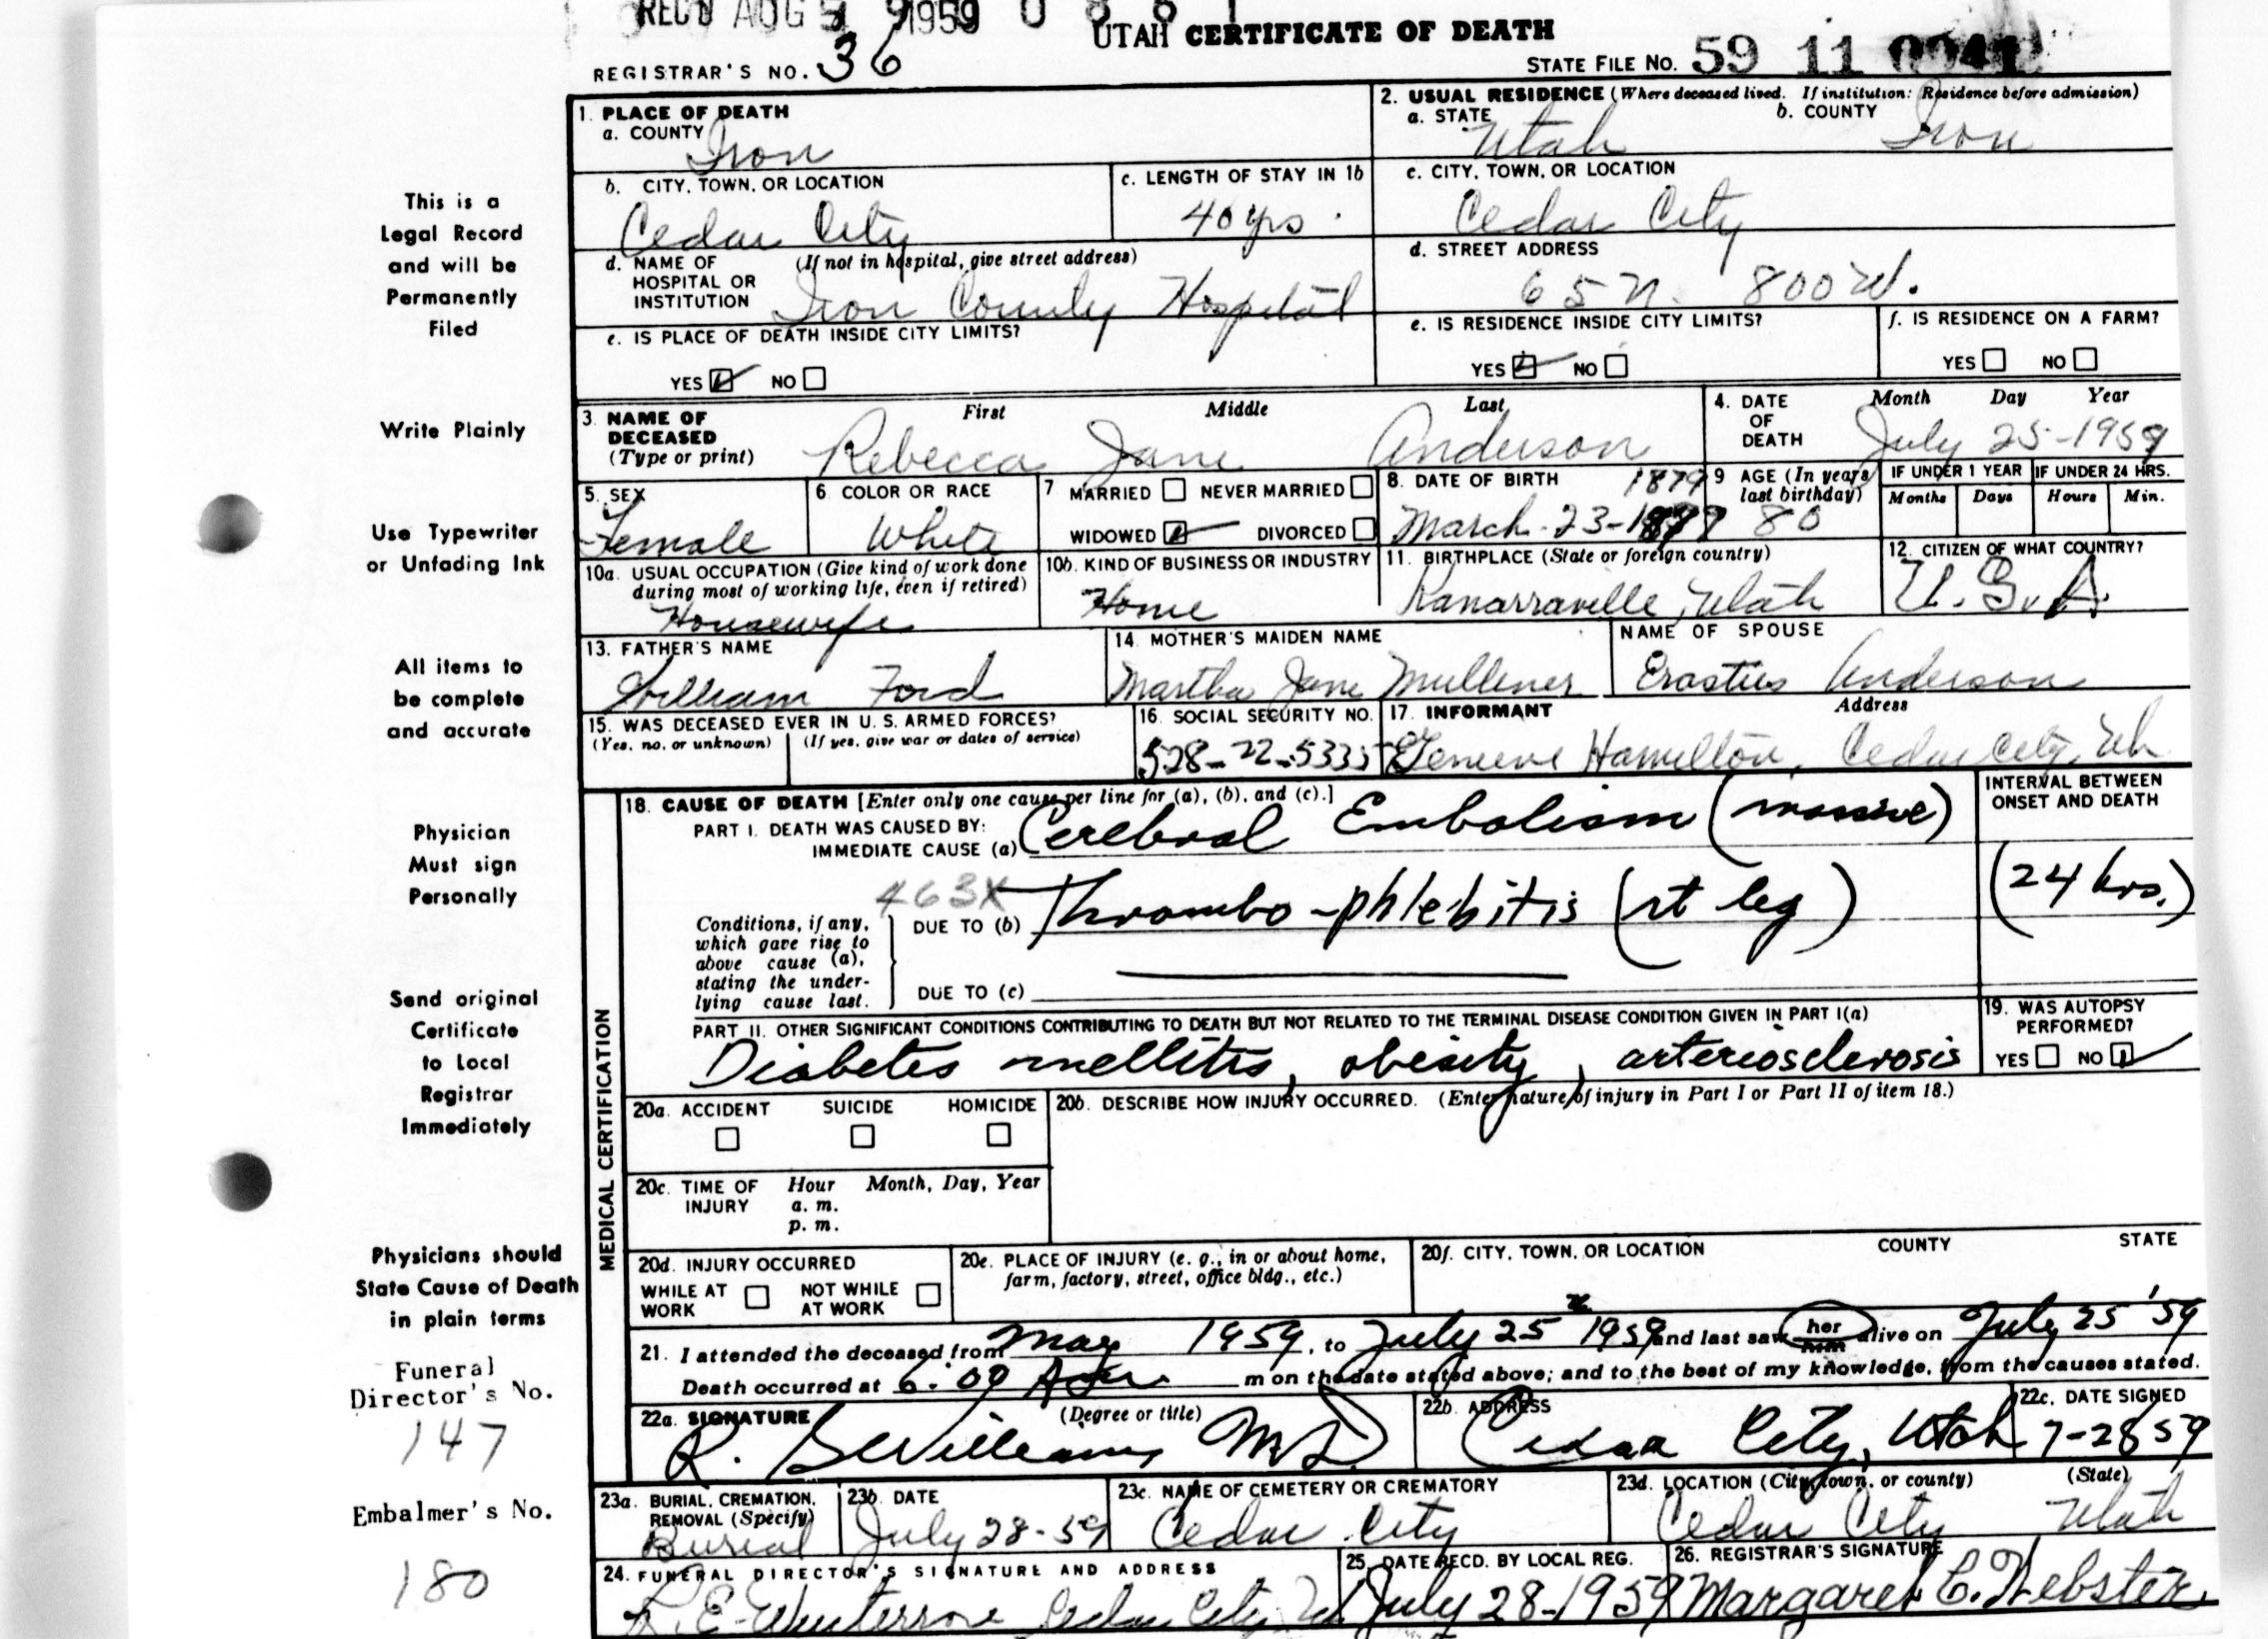 REC'D AUG 1959
UTAH CERTIFICATE OF DEATH
REGISTRAR'S NO. 36
STATE FILE NO. 59 11
This is a
Legal Record
and will be
Permanently
Filed
Write Plainly
Use Typewriter
or Unfading Ink
All items to
be complete
and accurate
Physician
Must sign
Personally
Send original
Certificate
to Local
Registrar
Immediately
Physicians should
State Cause of Death
in plain terms
Funeral
Director's No.
147
Embalmer's No.
180
1. PLACE OF DEATH
a. COUNTY
Iron
2. USUAL RESIDENCE (Where deceased lived. If institution: Residence before admission)
a. STATE Utah b. COUNTY Iron
b. CITY, TOWN, OR LOCATION
Cedar City
c. LENGTH OF STAY IN 1b
40 yrs.
c. CITY, TOWN, OR LOCATION
Cedar City
d. NAME OF (If not in hospital, give street address)
HOSPITAL OR
INSTITUTION Iron County Hospital
d. STREET ADDRESS
65 N. 800 W.
e. IS PLACE OF DEATH INSIDE CITY LIMITS?
YES NO
e. IS RESIDENCE INSIDE CITY LIMITS?
YES NO
f. IS RESIDENCE ON A FARM?
YES NO
3. NAME OF First Middle Last
DECEASED
(Type or print) Rebecca Jane Anderson
4. DATE Month Day Year
OF
DEATH July 25-1959
5. SEX
Female
6. COLOR OR RACE
White
7 MARRIED NEVER MARRIED
WIDOWED DIVORCED
8. DATE OF BIRTH 1879
March-23-
9 AGE (In years
last birthday)
80
IF UNDER 1 YEAR
Months Days
IF UNDER 24 HRS.
Hours Min.
10a. USUAL OCCUPATION (Give kind of work done
during most of working life, even if retired)
Housewife
10b. KIND OF BUSINESS OR INDUSTRY
Home
11. BIRTHPLACE (State or foreign country)
Kanarraville, Utah
12. CITIZEN OF WHAT COUNTRY?
U. S. A.
13. FATHER'S NAME
William Ford
14. MOTHER'S MAIDEN NAME
Martha Jane Mulliner
NAME OF SPOUSE
Erastus Anderson
15. WAS DECEASED EVER IN U. S. ARMED FORCES?
(Yes, no, or unknown) (If yes, give war or dates of service)
16. SOCIAL SECURITY NO.
528-22-5335
17. INFORMANT Address
Hamilton, Cedar City, Ut
18. CAUSE OF DEATH [Enter only one cause per line for (a), (b), and (c).]
INTERVAL BETWEEN
ONSET AND DEATH
PART I. DEATH WAS CAUSED BY:
IMMEDIATE CAUSE (a) Cerebral Embolism (massive)
463X
Conditions, if any,
which gave rise to
above cause (a),
stating the under-
lying cause last.
DUE TO (b) Thrombo-phlebitis (rt leg)
(24 hrs.)
DUE TO (c)
PART II. OTHER SIGNIFICANT CONDITIONS CONTRIBUTING TO DEATH BUT NOT RELATED TO THE TERMINAL DISEASE CONDITION GIVEN IN PART I(a)
Diabetes mellitis, obesity, arteriosclerosis
19. WAS AUTOPSY
PERFORMED?
YES NO
MEDICAL CERTIFICATION
20a. ACCIDENT SUICIDE HOMICIDE
20b. DESCRIBE HOW INJURY OCCURRED. (Enter nature of injury in Part I or Part II of item 18.)
20c. TIME OF Hour Month, Day, Year
INJURY a. m.
p. m.
20d. INJURY OCCURRED
WHILE AT NOT WHILE
WORK AT WORK
20e. PLACE OF INJURY (e. g., in or about home,
farm, factory, street, office bldg., etc.)
20f. CITY, TOWN, OR LOCATION COUNTY STATE
21. I attended the deceased from May 1959, to July 25 1959 and last saw her him alive on July 25 '59
Death occurred at 6:00 A m on the date stated above; and to the best of my knowledge, from the causes stated.
22a. SIGNATURE (Degree or title)
R. Williams MD.
22b. ADDRESS
Cedar City, Utah
22c. DATE SIGNED
7-28 59
23a. BURIAL, CREMATION,
REMOVAL (Specify)
Burial
23b. DATE
July 28-59
23c. NAME OF CEMETERY OR CREMATORY
Cedar City
23d. LOCATION (City, town, or county) (State)
Cedar City Utah
24. FUNERAL DIRECTOR'S SIGNATURE AND ADDRESS
Cedar City, Ut
25. DATE RECD. BY LOCAL REG.
July 28-1959
26. REGISTRAR'S SIGNATURE
Margaret C. Webster